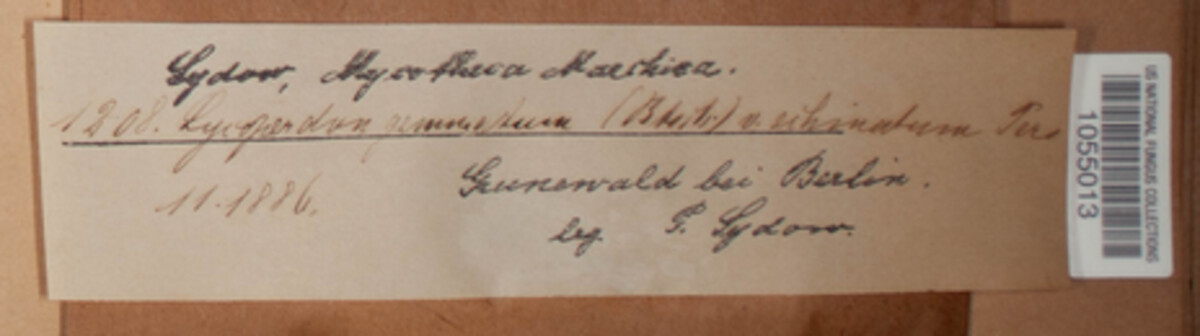 Sydow, Mycotheca Marchica.
1208. Lycoperdon gemmatum (Batsch) v. echinatum Pers
11.1886.
Grunewald bei Berlin.
leg. P. Sydow.
US NATIONAL FUNGUS COLLECTIONS
1055013